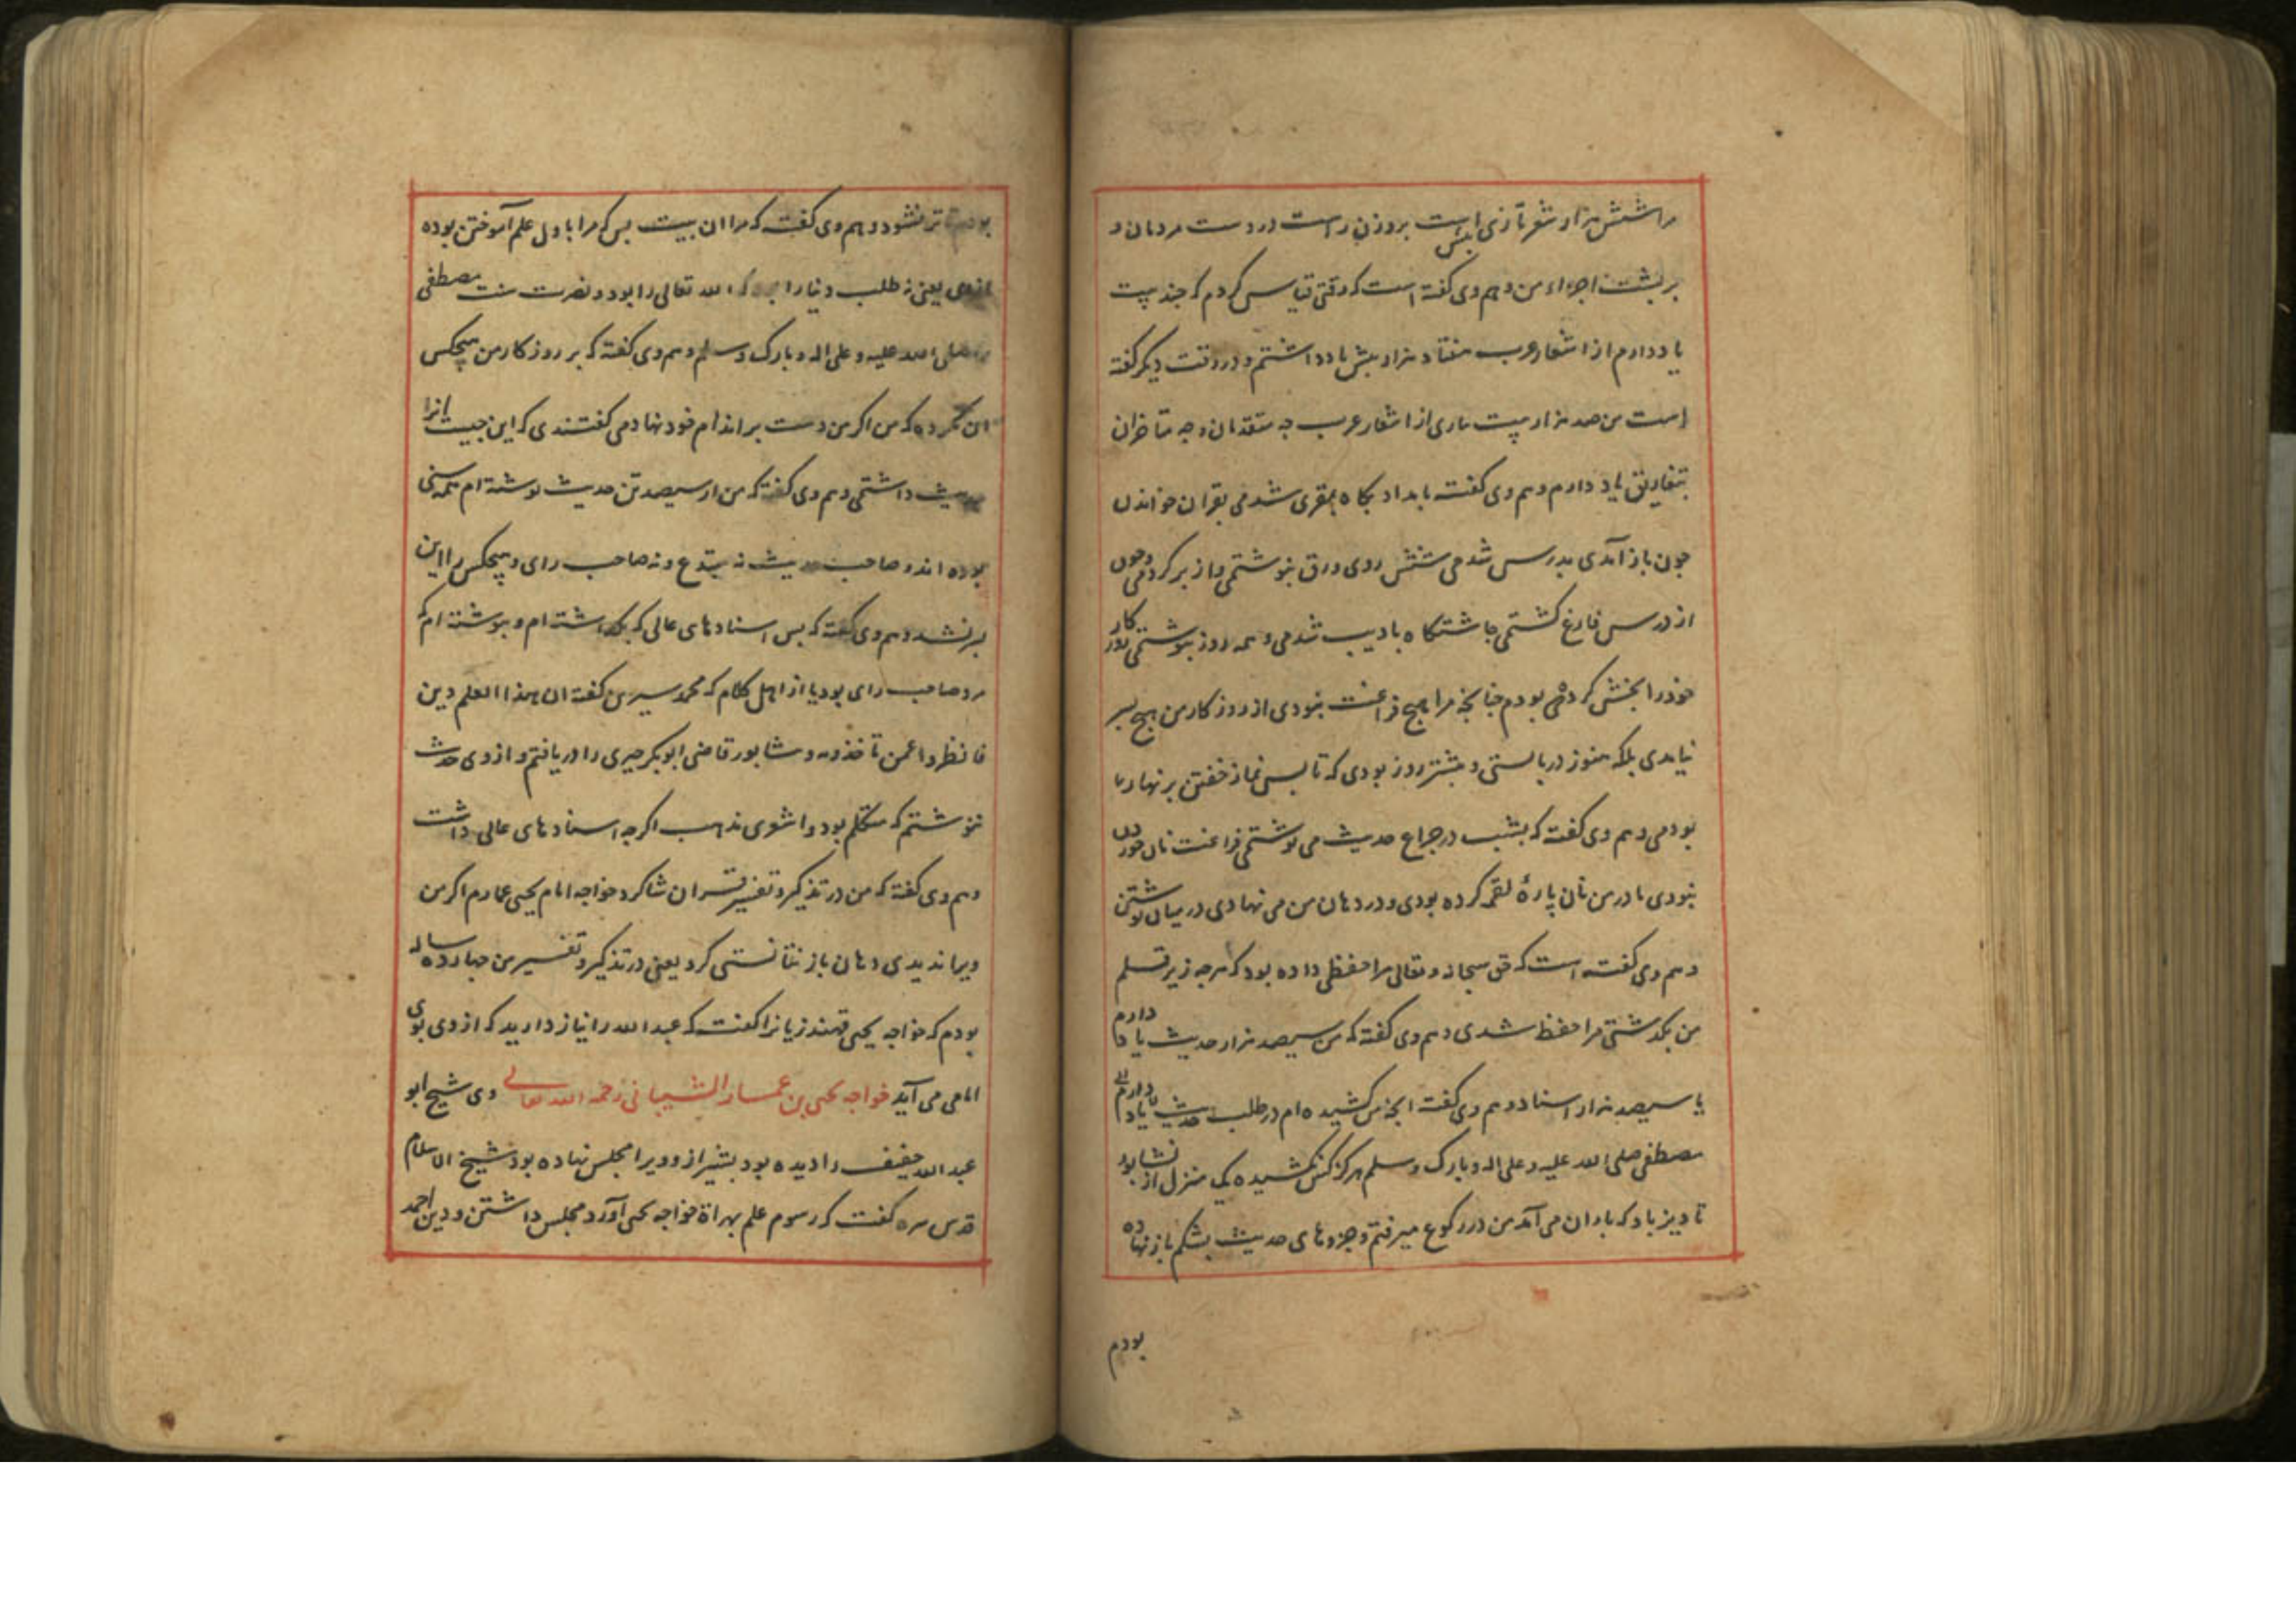 مرا شش هزار شعر تازی است بیش بر وزن راست در دست مردمان و
بر پشت اجزاء من و هم وی گفته است که وقتی قیاس کردم که چند بیت
یاد دارم از اشعار عرب هفتاد هزار بیش یاد داشتم و در وقت دیگر گفته
است من صد هزار بیت از اشعار عرب چه متقدمان و چه متاخران
بتفاریق یاد دارم و هم وی گفت بامداد پکاه بمقری شدمی بقران خواندن
چون باز آمدی بدرس شدمی شش روی ورق بنوشتمی و از بر کردمی و چون
از درس فارغ گشتمی چاشتگاه بادیب شدمی و همه روز بنوشتمی روزکار
خود را بخش کرده بودم چنانچه مرا هیچ فراغت نبودی از روزکار من هیچ بسر
نیامدی بلکه هنوز دربایستی و بیشتر روز بودی که تا پس نماز خفتن بر نهار
بودمی و هم وی گفته که بشب در چراغ حدیث می نوشتمی فراغت نان خوردن
نبودی مادر من نان پارهٔ لقمه کرده بودی و در دهان من می نهادی در میان نوشتن
و هم وی گفته است که حق سبحانه و تعالی مرا حفظی داده بود که هر چه زیر قلم
من بکذشتی مرا حفظ شدی و هم وی گفته که من سیصد هزار حدیث یاد دارم
با سیصد هزار اسناد و هم وی گفته انچه من کشیده ام در طلب حدیث
مصطفی صلی الله علیه و علی اله و بارک و سلم هرکز کس نکشیده یک منزل از نشابور
تا دیزباد که باران می آمد من در رکوع میرفتم و جزوهای حدیث بشکم باز نهاده
بودم
بودم تا تر نشود و هم وی گفت که مرا ان بیت بس که مرا باول علم آموختن بوده
یعنی نه طلب دنیا را که الله تعالی را بود و نصرت سنت مصطفی
صلی الله علیه و علی اله و بارک و سلم و هم وی گفته که بر روزکار من هیچکس
ان نکرده که من اکر من دست بر اندام خود نهادمی گفتندی که این چیست انرا
حدیث داشتمی و هم وی گفته که من از سیصد تن حدیث نوشته ام همه سنی
بوده اند و صاحب حدیث نه مبتدع و نه صاحب رای و هیچکس را این
بر نشد و هم وی گفته که بس اسنادهای عالی که بکذاشته ام و ننوشته ام که
مرد صاحب رای بود یا از اهل کلام که محمد سیرین گفته ان هذا العلم دین
فانظروا عمن تاخذونه و بنشابور قاضی ابوبکر حیری را دریافتم و از وی حدیث
ننوشتم که متکلم بود و اشعری مذهب اکرچه اسنادهای عالی داشت
و هم وی گفته که من در تذکیر و تفسیر قران شاکرد خواجه امام یحیی عمارم اکر من
ویرا ندیدی دهان باز نتانستی کرد یعنی در تذکیر و تفسیر من چهارده ساله
بودم که خواجه یحیی قهندزیانرا گفت که عبد الله را بناز دارید که از وی بوی
امامی می آید خواجه یحیی بن عمار الشیبانی رحمه الله تعالی وی شیخ ابو
عبد الله خفیف را دیده بود بشیراز و ویرا مجلس نهاده بود شیخ الاسلام
قدس سره گفت که رسوم علم بهراة خواجه یحیی آورد مجلس داشتن و دین احمد